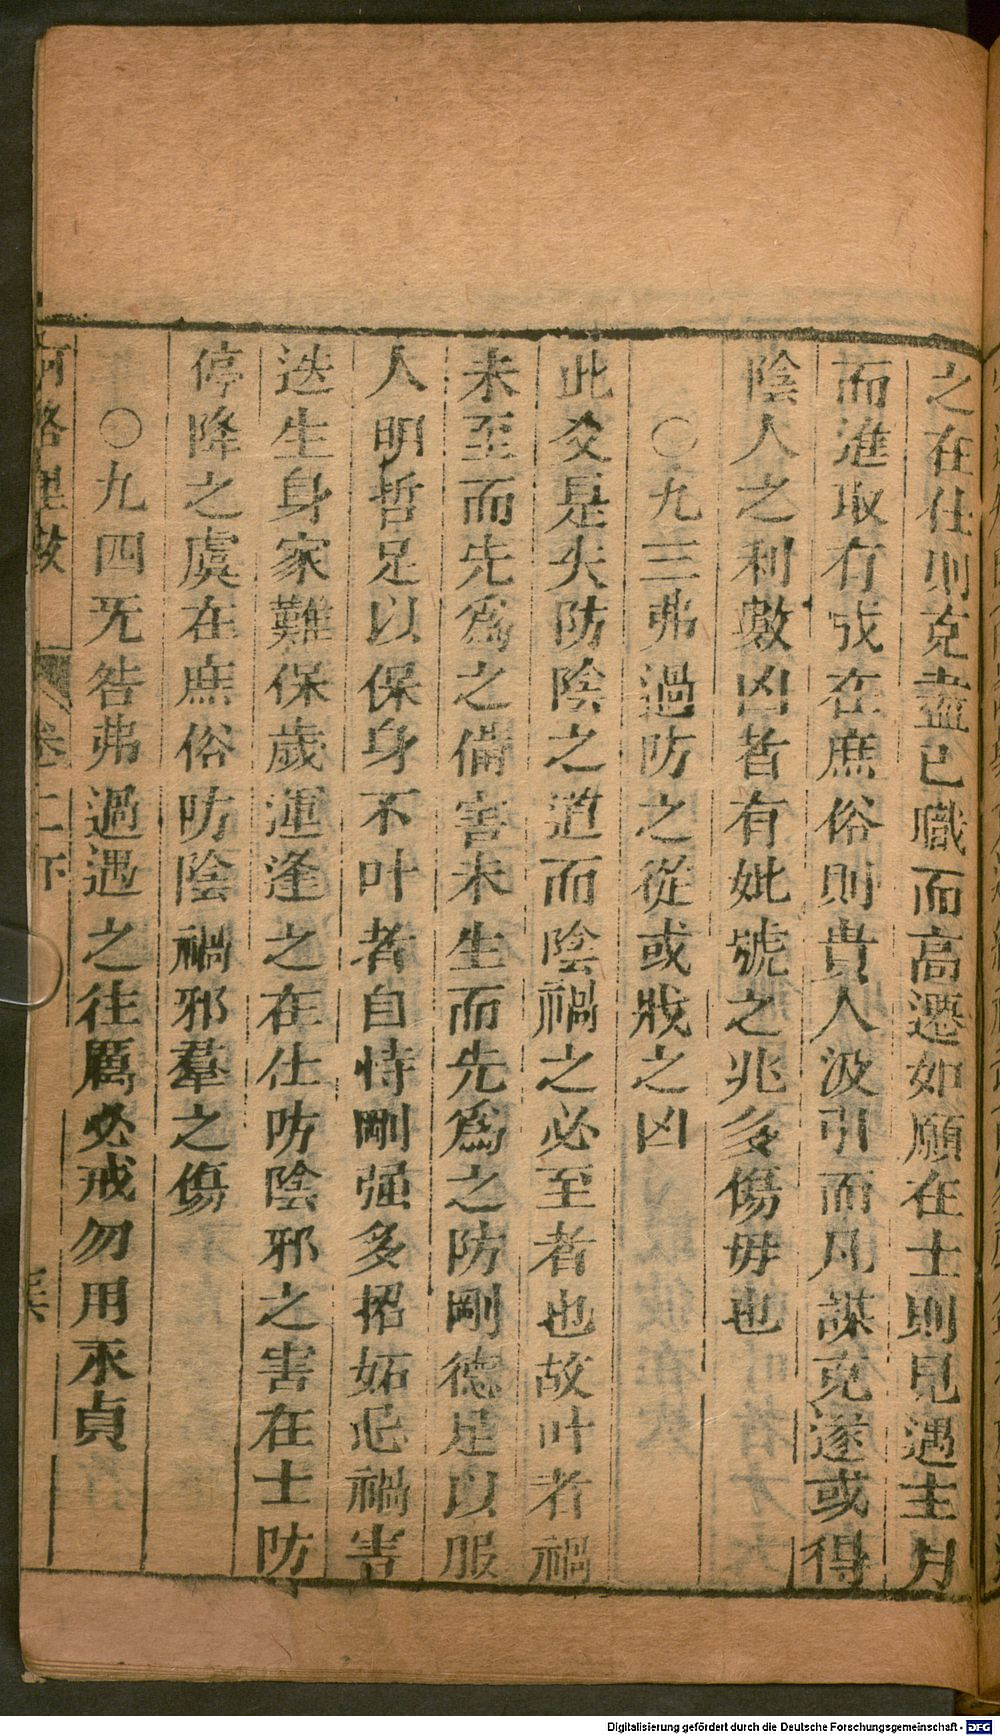 之在仕則克盡已職而高遷如願在士則見遇主月
而進取有成在庶俗則貴人汲引而凡謀克遂或得
陰人之利數凶者有妣號之兆多傷毋也
○九三弗過防之從或戕之凶
此爻是失防陰之道而陰禍之必至者也故叶者禍
未至而先為之俻害未生而先為之防剛德足以服
人明哲足以保身不叶者自恃剛强多招妬忌禍害
迭生身家難保歲運逢之在仕防陰邪之害在士防
停降之虞在庶俗防陰禍邪羣之傷
○九四无咎弗過遇之往厲必戒勿用永貞
河洛理數 卷二下
Digitalisierung gefördert durch die Deutsche Forschungsgemeinschaft - DFG